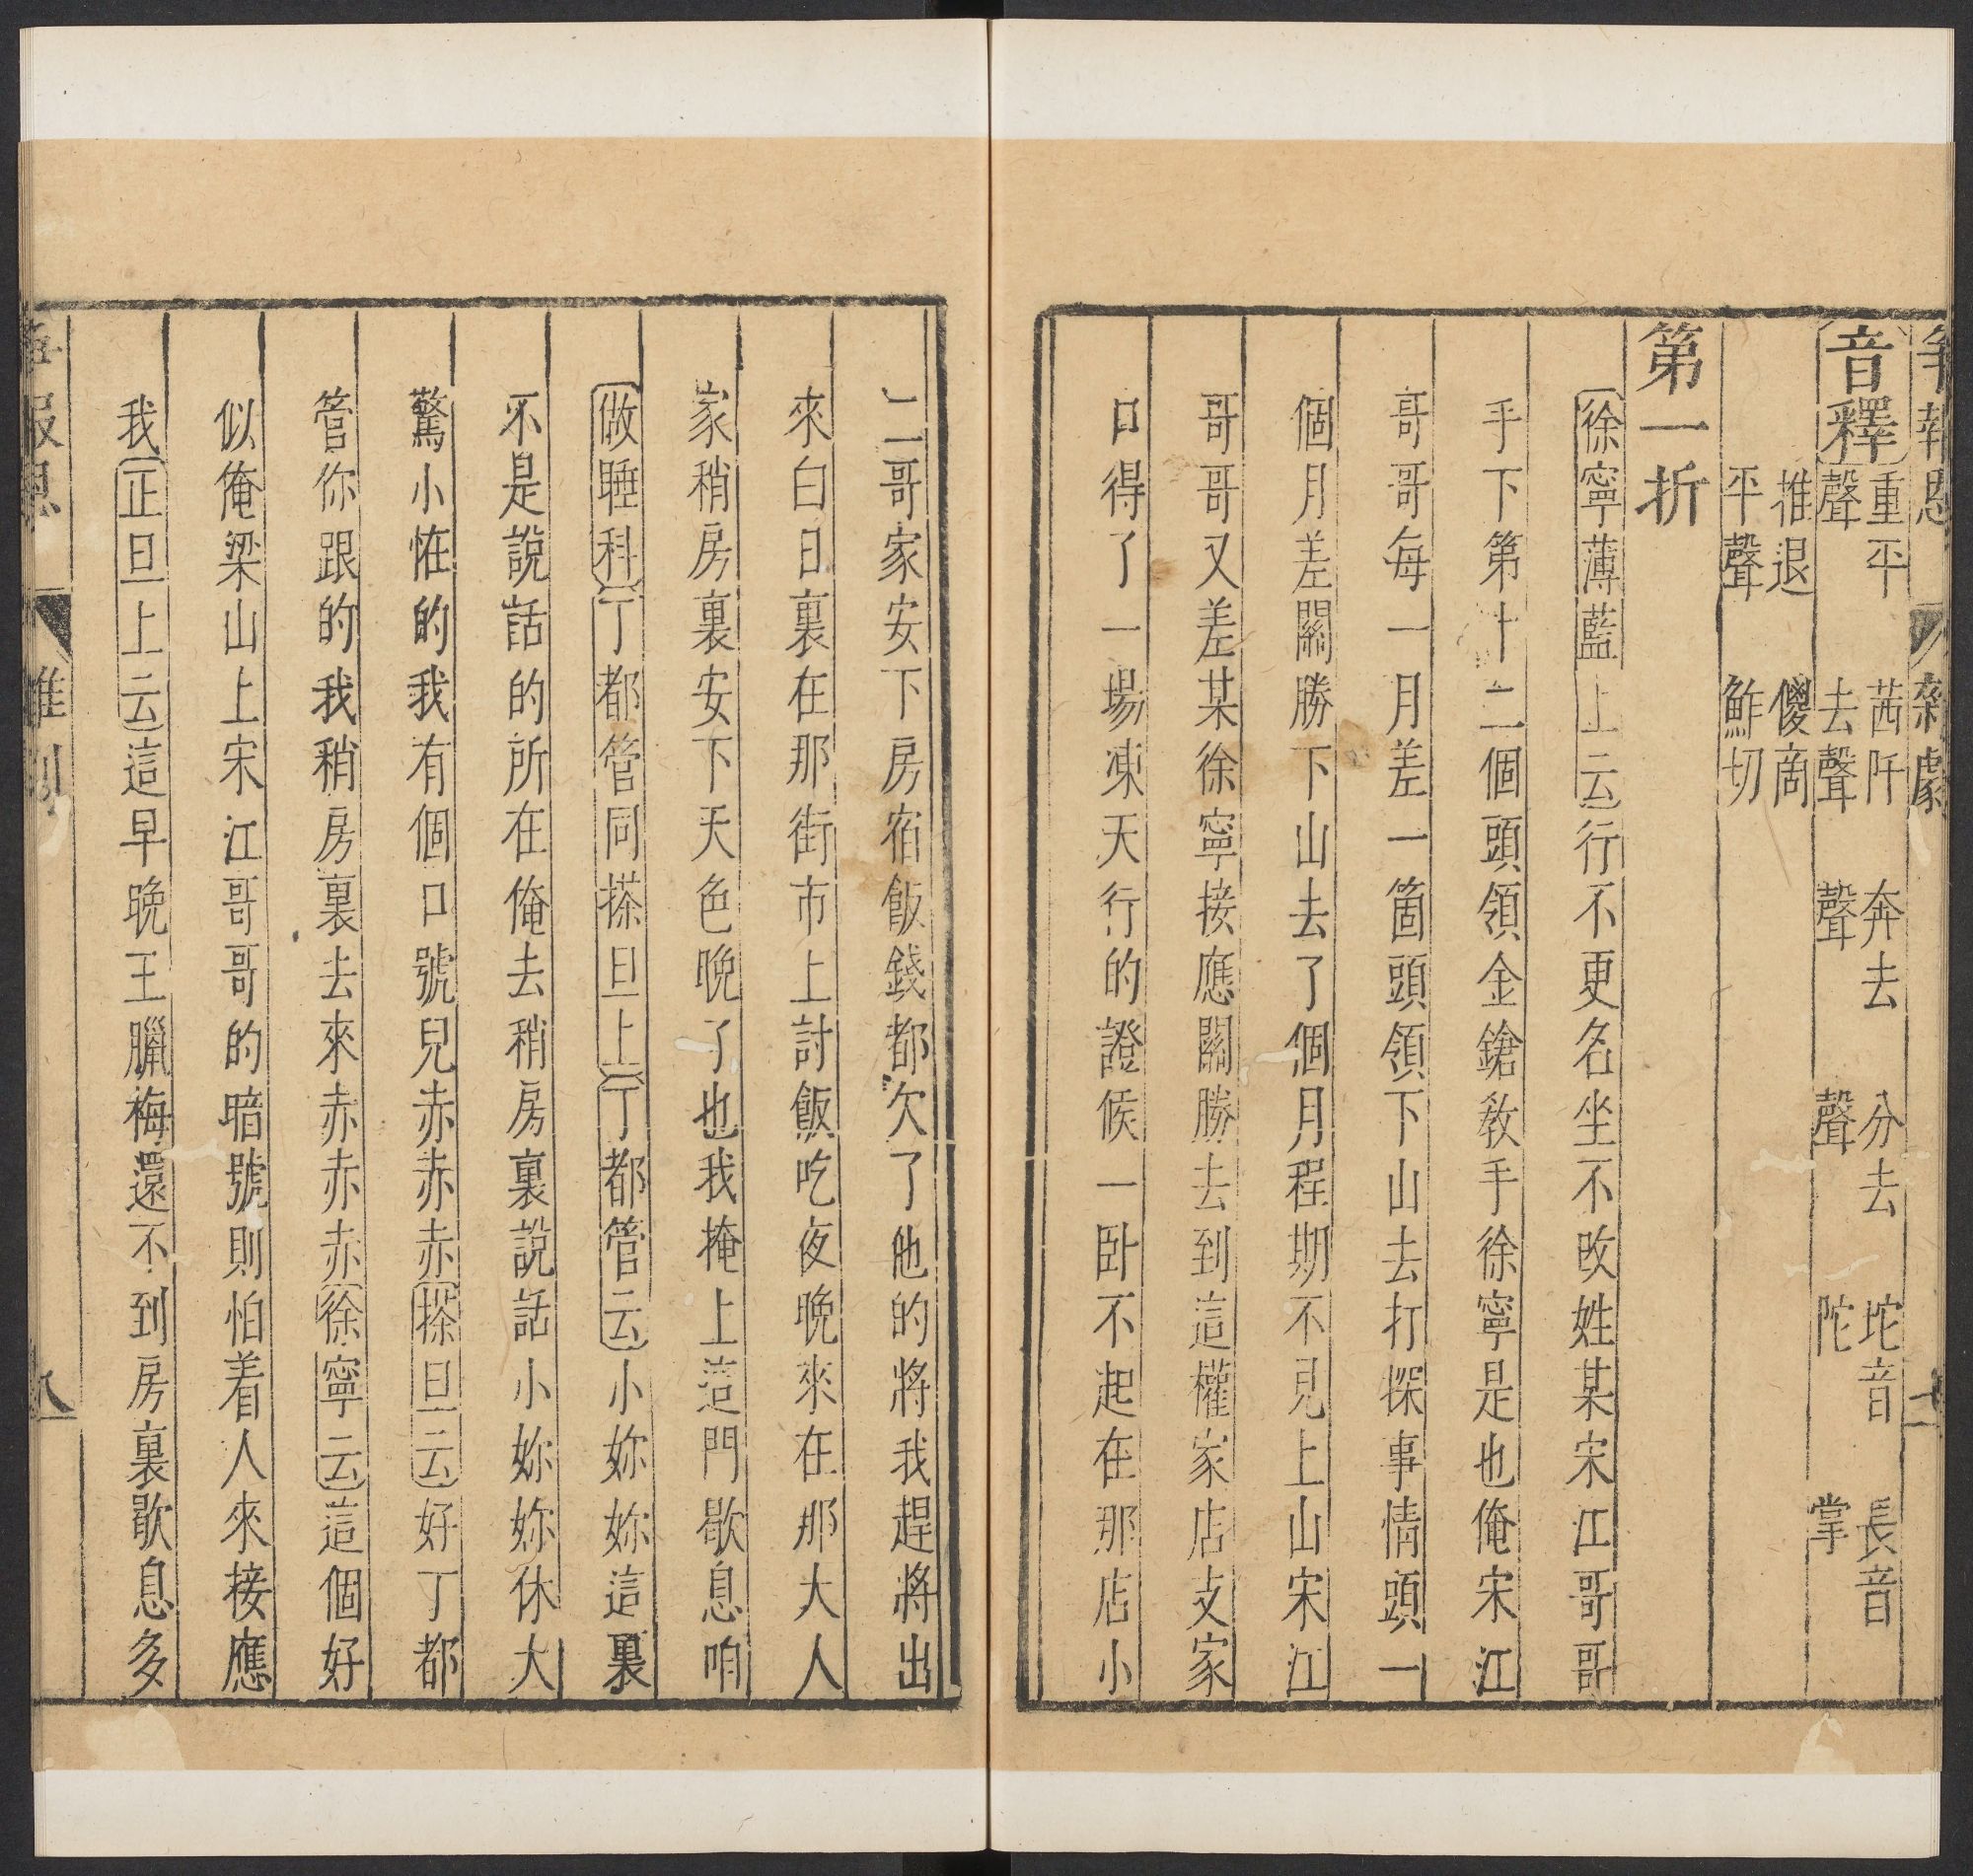 爭報恩 雜劇
音釋 重平聲 茜阡去聲 奔去聲 分去聲 坨音陀 長音掌
推退平聲 傻商鮓切
第一折
徐寧薄藍上云行不更名坐不改姓某宋江哥哥
手下第十二個頭領金鎗敎手徐寧是也俺宋江
哥哥每一月差一箇頭領下山去打探事情頭一
個月差關勝下山去了個月程期不見上山宋江
哥哥又差某徐寧接應關勝去到這權家店支家
口得了一場凍天行的證候一卧不起在那店小
二哥家安下房宿飯錢都欠了他的將我趕將出
來白日裏在那街市上討飯吃夜晚來在那大人
家稍房裏安下天色晚了也我掩上這門歇息咱
做睡科丁都管同搽旦上丁都管云小妳妳這裏
不是說話的所在俺去稍房裏說話小妳妳休大
驚小恠的我有個口號兒赤赤赤搽旦云好丁都
管你跟的我稍房裏去來赤赤赤徐寧云這個好
似俺梁山上宋江哥哥的暗號則怕着人來接應
我正旦上云這早晚王臘梅還不到房裏歇息多
爭報恩 雜劇 八